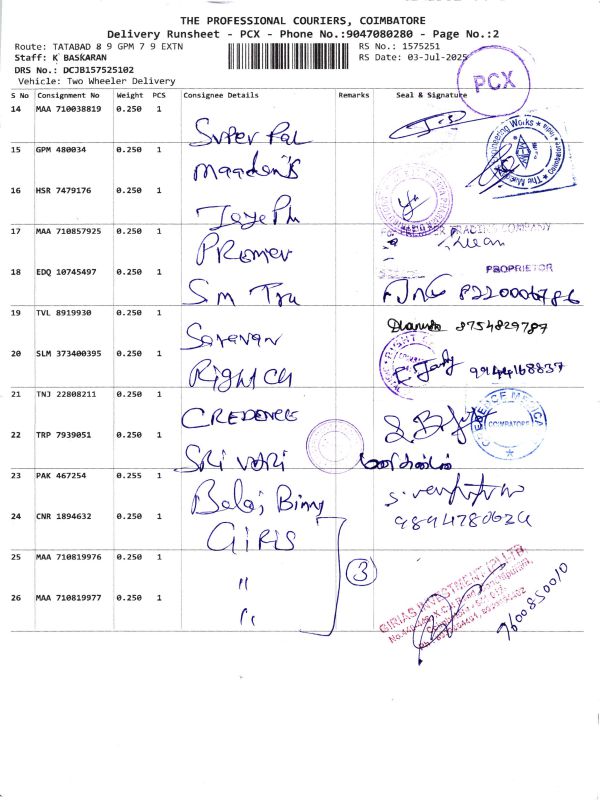 THE PROFESSIONAL COURIERS, COIMBATORE
Delivery Runsheet - PCX - Phone No.:9047080280 - Page No.:2
Route: TATABAD 8 9 GPM 7 9 EXTN
RS No.: 1575251
Staff: K BASKARAN
RS Date: 03-Jul-2025
DRS No.: DCJB157525102
Vehicle: Two Wheeler Delivery
PCX
S No Consignment No Weight PCS Consignee Details Remarks Seal & Signature
14 MAA 710038819 0.250 1 Super Pal
15 GPM 480034 0.250 1
16 HSR 7479176 0.250 1
17 MAA 710857925 0.250 1 Premier TRADING COMPANY
18 EDQ 10745497 0.250 1 Sm PROPRIETOR
8220006786
19 TVL 8919930 0.250 1 Saravan 8754829787
20 SLM 373400395 0.250 1 Right Ch 9944168837
21 TNJ 22808211 0.250 1 CREDENCE
CREDENCE MEDICA COIMBATORE
22 TRP 7939051 0.250 1 SRi VARi
23 PAK 467254 0.255 1 Balaj Binny
24 CNR 1894632 0.250 1 GiRiS 9894780624
25 MAA 710819976 0.250 1 "
3
26 MAA 710819977 0.250 1 "
GIRIAS INVESTMENT (P) LTD.
9600850010